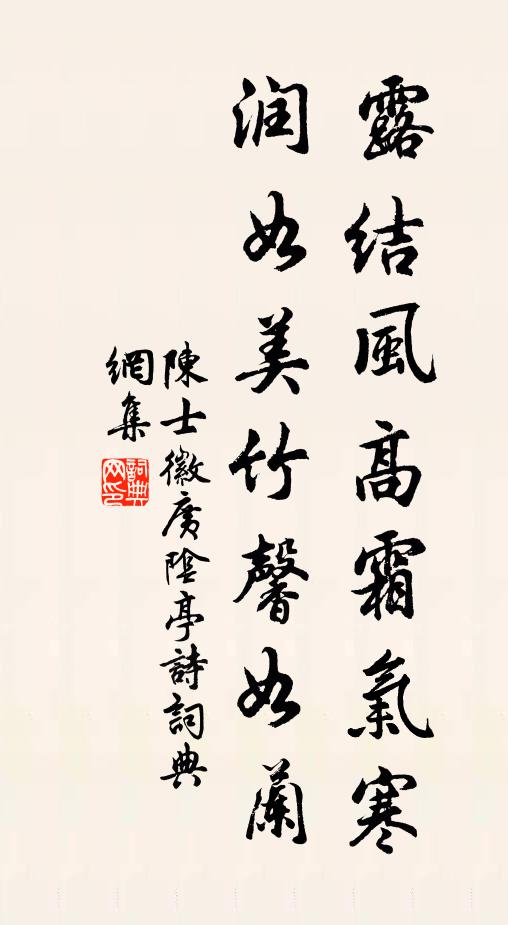 露结風高霜氣寒
润如美竹馨如蘭
陳士徽廣陰亭詩詞典
網集
詞典
网印